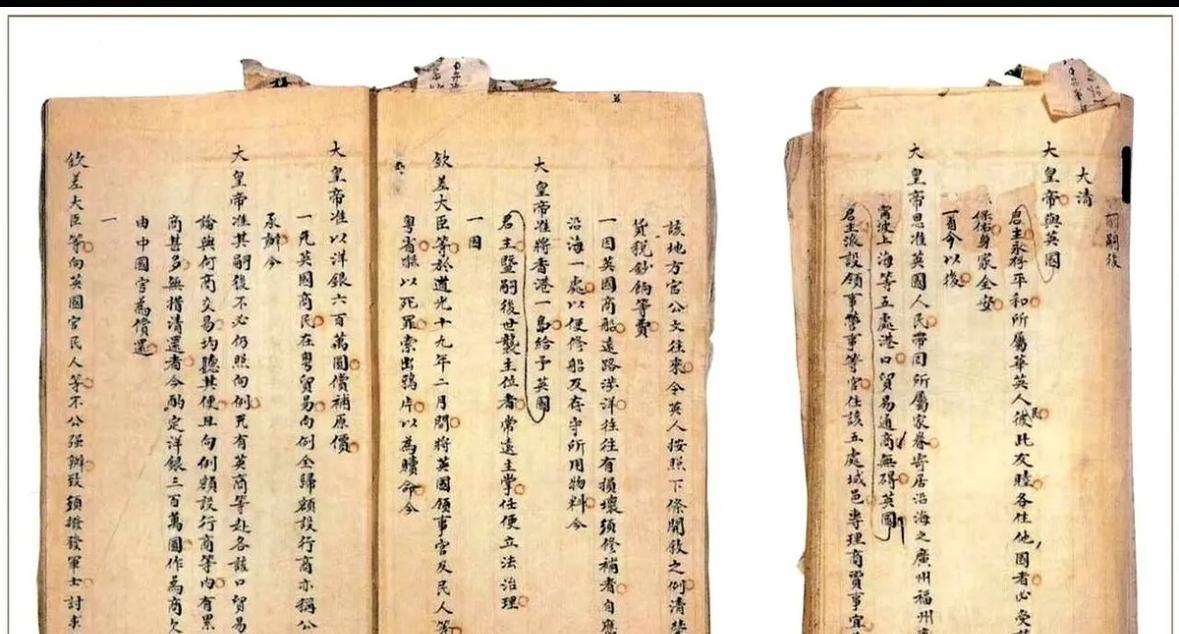 前嗣後
大清
大皇帝與英國
君主永存平和所屬華英人彼此友睦各住他國者必受
保佑身家全安
一自今以後
大皇帝恩准英國人民帶同所屬家眷寄居沿海之廣州福州
寧波上海等五處港口貿易通商無礙英國
君主派設領事管事等官住該五處城邑專理商賈事宜
該地方官公文往來令英人按照下條開敘之例清楚
貨稅鈔餉等費
一因英國商船遠路涉洋往往有損壞須修補者自應
沿海一處以便修船及存守所用物料今
大皇帝准將香港一島給予英國
君主暨嗣後世襲主位者常遠主掌任便立法治理
一因
欽差大臣等於道光十九年二月間將英國領事官及民人等
粵省挾以死罪索出鴉片以為贖命今
大皇帝准以洋銀六百萬圓償補原價
一凡英國商民在粵貿易向例全歸額設行商亦稱公
承辦今
大皇帝准其嗣後不必仍照向例凡有英商等赴各該口貿易
論與何商交易均聽其便且向例額設行商等內有累
商甚多無措清還者今酌定洋銀三百萬圓作為商欠
由中國官為償還
一
欽差大臣等向英國官民人等不公强辦致須撥發軍士討求